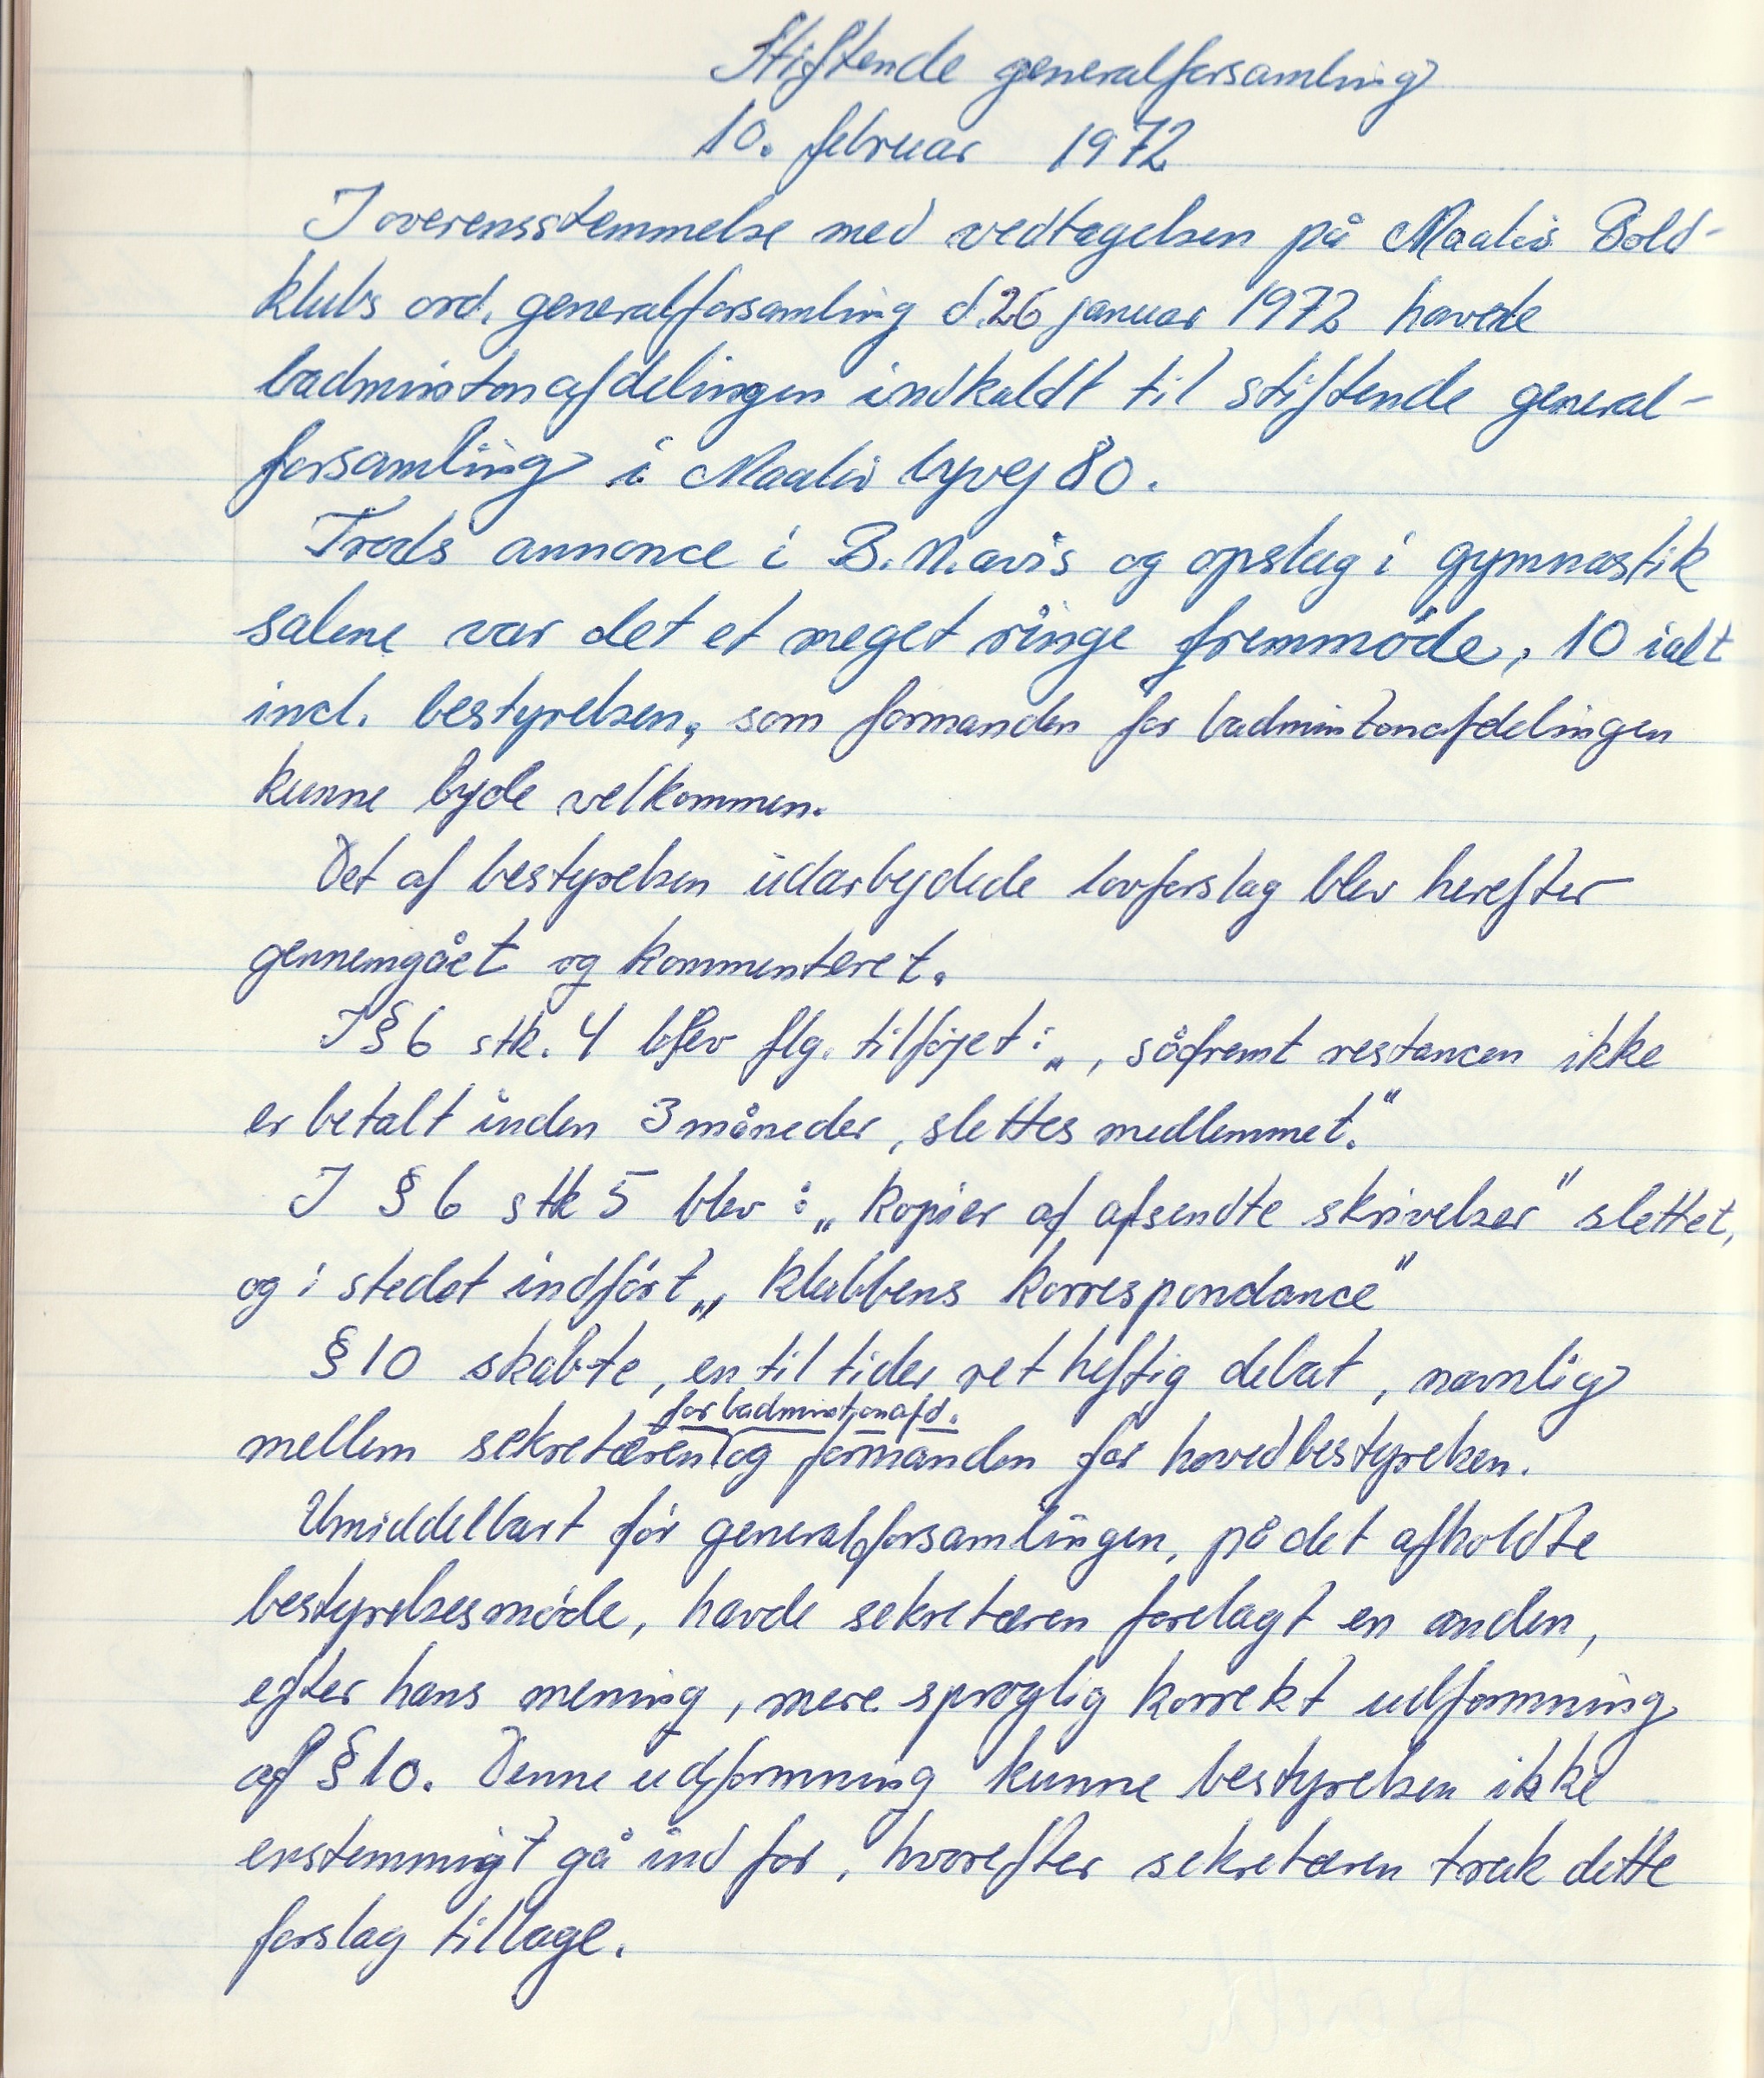 Stiftende generalforsamling
10. februar 1972
I overensstemmelse med vedtagelsen på Maaløv Bold-
klubs ord. generalforsamling d. 26 januar 1972 havde
badmintonafdelingen indkaldt til stiftende general-
forsamling i Maaløv byvej 80.
Trods annonce i B.N.avis og opslag i gymnastik
salene var det et meget ringe fremmøde, 10 ialt
incl. bestyrelsen, som formanden for badmintonafdelingen
kunne byde velkommen.
Det af bestyrelsen udarbejdede lovforslag blev herefter
gennemgået og kommenteret.
I § 6 stk. 4 blev flg. tilføjet: „, såfremt restancen ikke
er betalt inden 3 måneder, slettes medlemmet."
I § 6 stk 5 blev: „ kopier af afsendte skrivelser" slettet,
og i stedet indført „ klubbens korrespondance"
§ 10 skabte, en til tider ret heftig debat, nemlig
for badmintonafd.
mellem sekretæren og formanden for hovedbestyrelsen.
Umiddelbart før generalforsamlingen, på det afholdte
bestyrelsesmøde, havde sekretæren forelagt en anden,
efter hans mening, mere sproglig korrekt udformning
af § 10. Denne udformning kunne bestyrelsen ikke
enstemmigt gå ind for, hvorefter sekretæren trak dette
forslag tilbage.